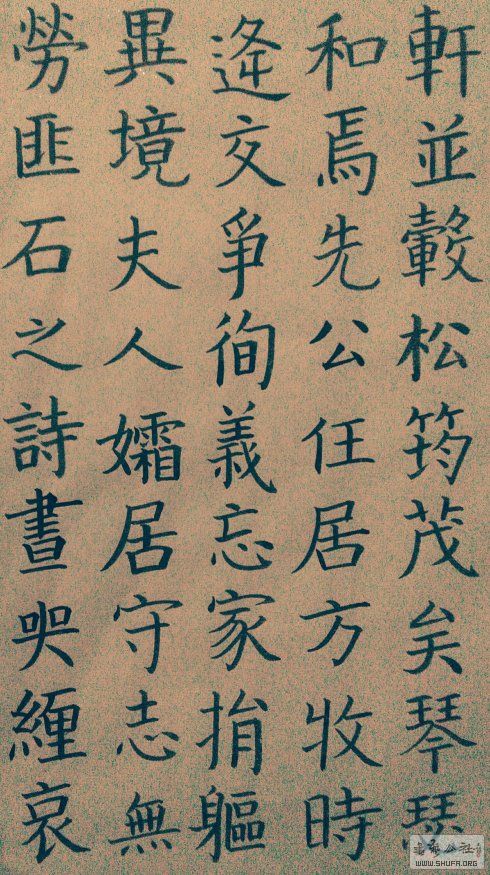 軒並轂松筠茂矣琴瑟
和焉先公任居方牧時
逢交爭徇義忘家捐軀
異境夫人孀居守志無
勞匪石之詩晝哭纏哀
WWW.SHUFA.ORG